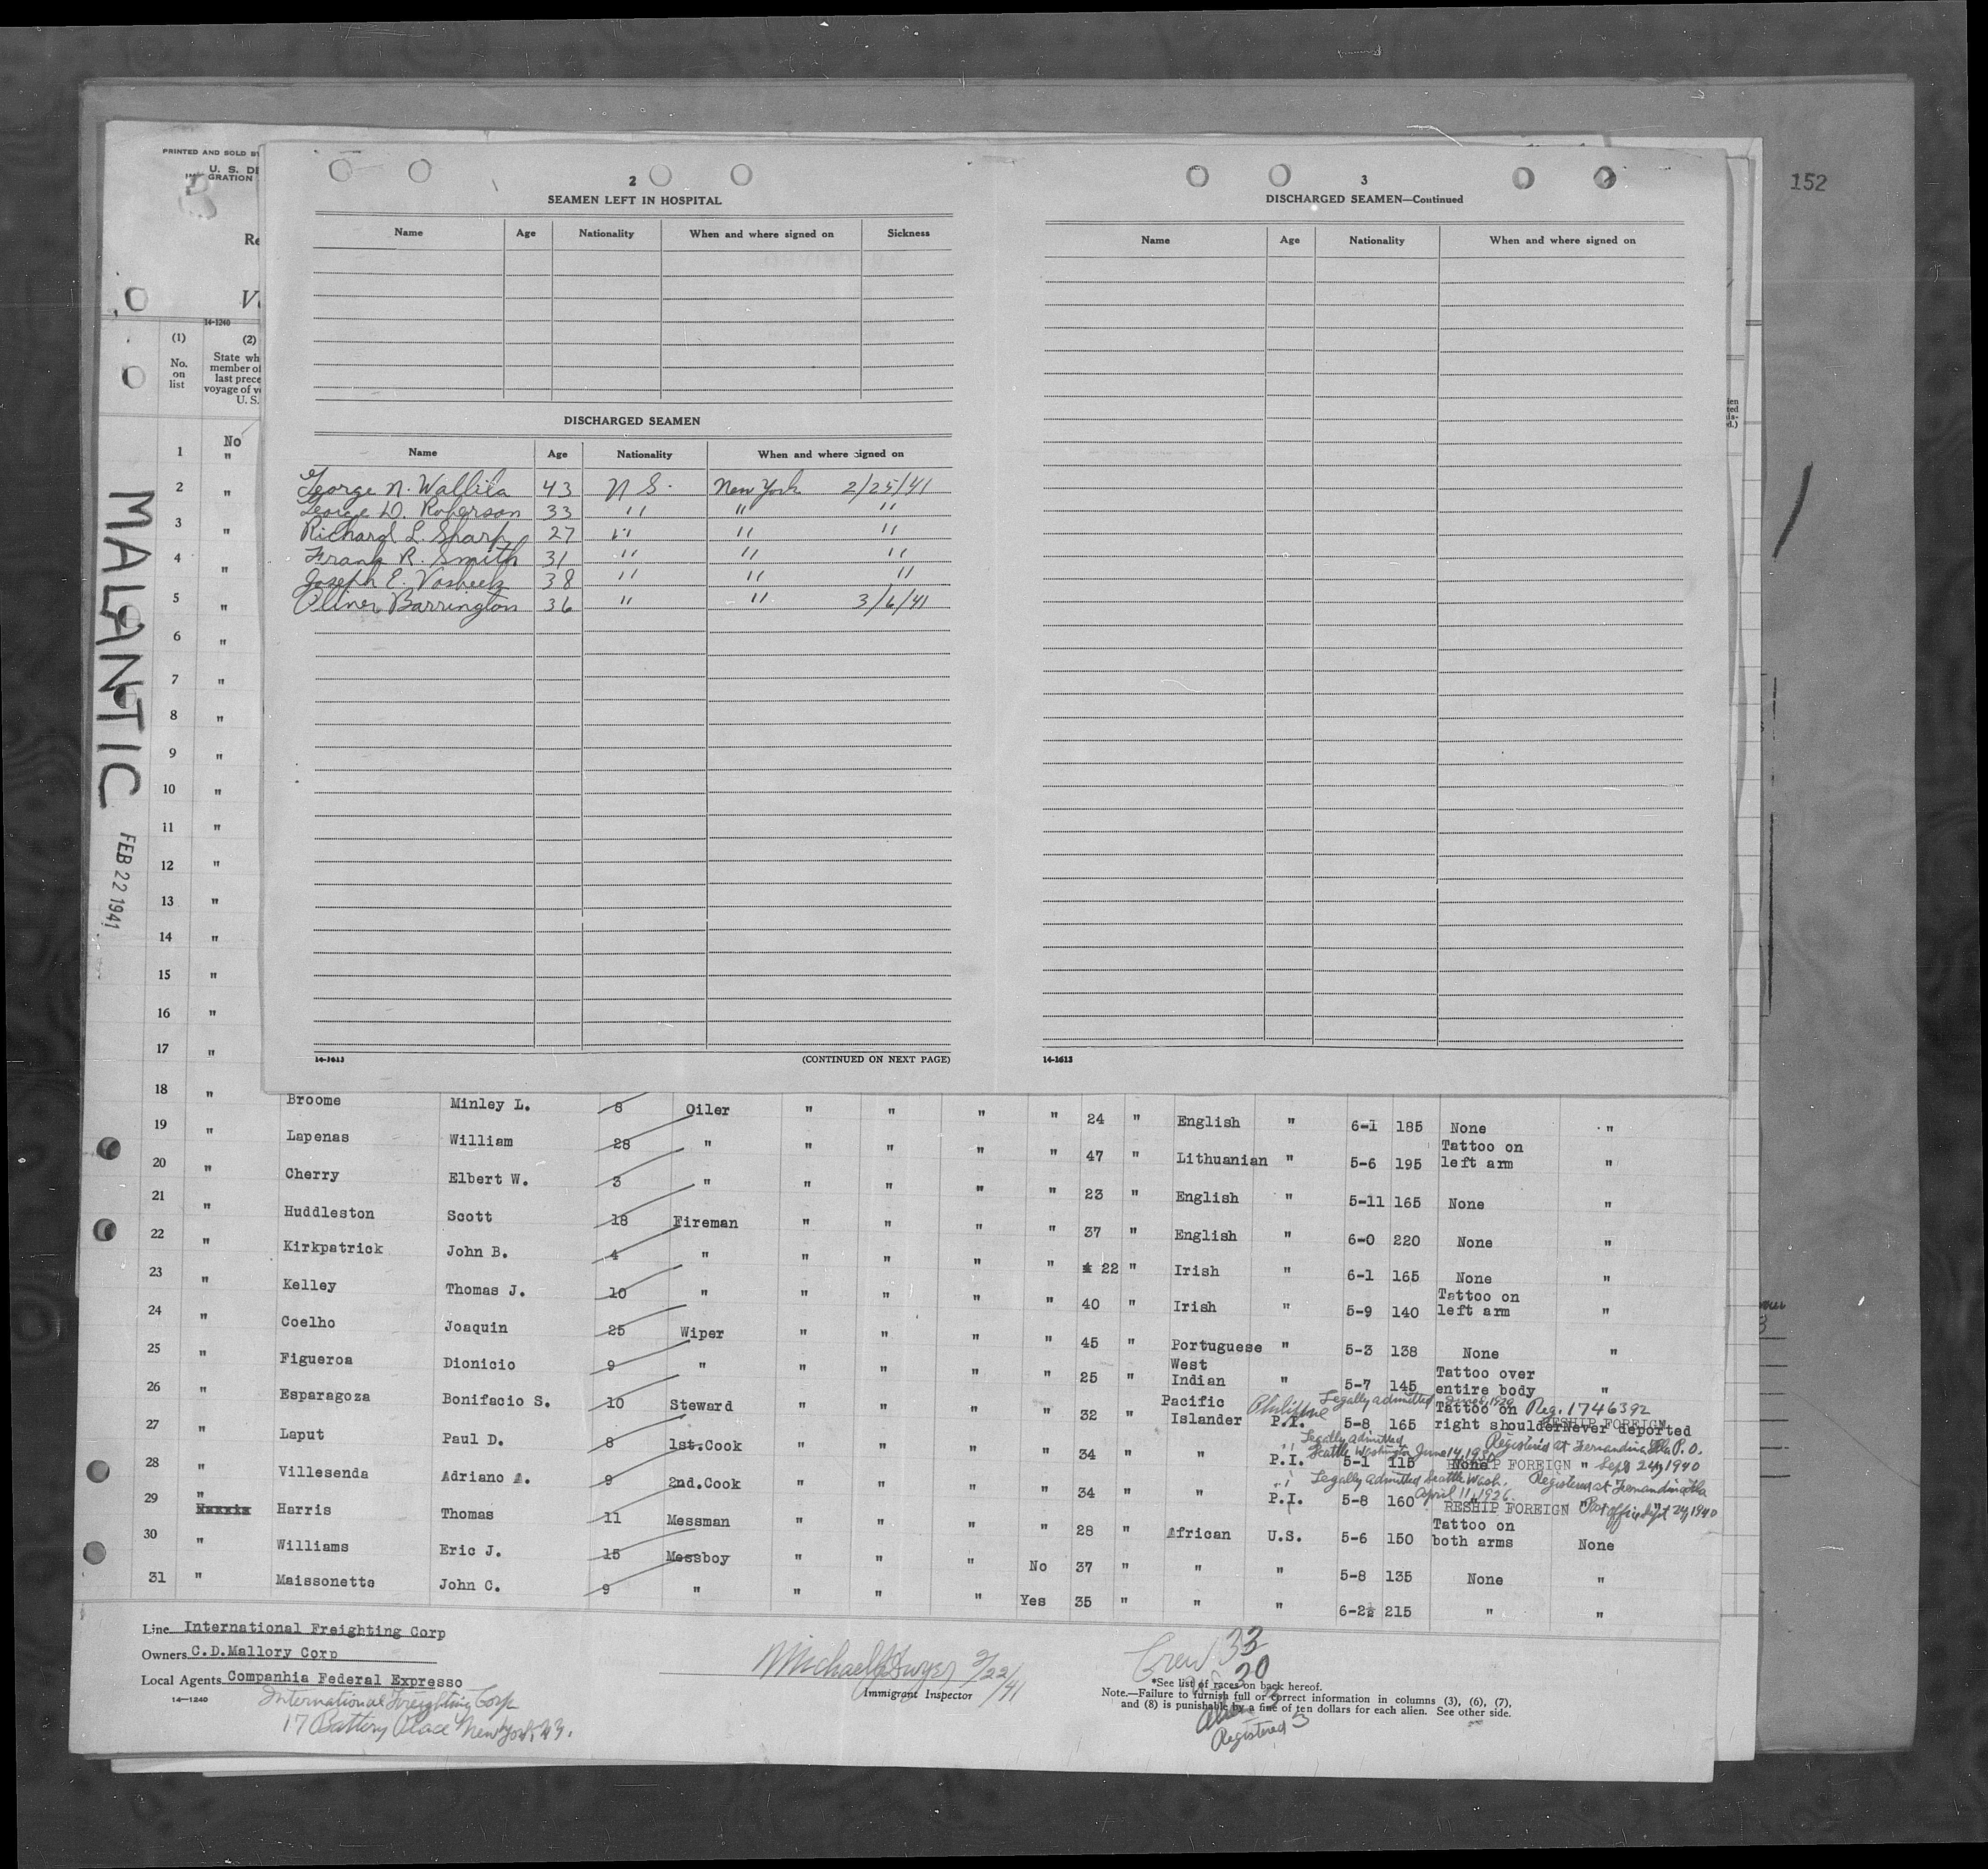 152
PRINTED AND SOLD BY
U. S. DE
IMMIGRATION
Re
14-1240
(1) (2)
No. on list
State wh
member of
last prece
voyage of v
U. S.
MALANTIC
FEB 22 1941
No
1 "
2 "
3 "
4 "
5 "
6 "
7 "
8 "
9 "
10 "
11 "
12 "
13 "
14 "
15 "
16 "
17 "
2
SEAMEN LEFT IN HOSPITAL
Name Age Nationality When and where signed on Sickness
DISCHARGED SEAMEN
Name Age Nationality When and where signed on
George N. Wallila 43 N S. New York 2/25/41
George D. Roperson 33 " " "
Richard L. Sharp 27 " " "
Frank R. Smith 31 " " "
Joseph E. 38 " " "
Barrington 36 " " 3/6/41
14-1613 (CONTINUED ON NEXT PAGE)
3
DISCHARGED SEAMEN—Continued
Name Age Nationality When and where signed on
14-1613
18 " Broome Minley L. 8 Oiler " " " " 24 " English " 6-1 185 None "
19 " Lapenas William 28 " " " " " 47 " Lithuanian " 5-6 195 Tattoo on left arm "
20 " Cherry Elbert W. 3 " " " " " 23 " English " 5-11 165 None "
21 " Huddleston Scott 18 Fireman " " " " 37 " English " 6-0 220 None "
22 " Kirkpatrick John B. 4 " " " " " 22 " Irish " 6-1 165 None "
23 " Kelley Thomas J. 10 " " " " " 40 " Irish " 5-9 140 Tattoo on left arm "
24 " Coelho Joaquin 25 Wiper " " " " 45 " Portuguese " 5-3 138 None "
25 " Figueroa Dionicio 9 " " " " " 25 " West Indian " 5-7 145 Tattoo over entire body "
Legally admitted
26 " Esparagoza Bonifacio S. 10 Steward " " " " 32 " Pacific Islander Philippine P.I. 5-8 165 Tattoo on right shoulder Reg. 1746392 RESHIP FOREIGN Never deported
Legally admitted Seattle Washington June 14, Registered at Fernandina Fla P.O.
27 " Laput Paul D. 8 1st.Cook " " " " 34 " " P.I. 5-1 115 None RESHIP FOREIGN " Sept 24, 1940
Legally admitted Seattle Wash. April 11, 1926. Registered at Fernandina Fla
28 " Villesenda Adriano A. 9 2nd.Cook " " " " 34 " " P.I. 5-8 160 " RESHIP FOREIGN " Post office Sept 24, 1940
29 " Harris Thomas 11 Messman " " " " 28 " African U.S. 5-6 150 Tattoo on both arms None
30 " Williams Eric J. 15 Messboy " " " No 37 " " " 5-8 135 None "
31 " Maissonette John C. 9 " " " " Yes 35 " " " 6-2½ 215 " "
Line International Freighting Corp
Owners C.D.Mallory Corp
Local Agents Companhia Federal Expresso
14-1240
International Freighting Corp
17 Battery Place New York, N.Y.
Michael J Dwyer 2/22/41
Immigrant Inspector
Crew 33
30
Alien 3
Registered 3
*See list of races on back hereof.
Note.—Failure to furnish full or correct information in columns (3), (6), (7),
and (8) is punishable by a fine of ten dollars for each alien. See other side.